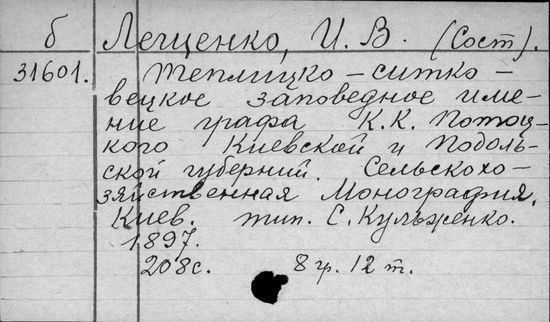 б Лещенко, И. В. (Сост).
31601. Теплицко-ситко-
вецкое заповедное име-
ние графа К.К. Потоц-
кого Киевской и Подоль-
ской губерний. Сельскохо-
зяйственная Монография.
Киев. тип. С. Кульженко.
1897.
208с. 8 гр. 12 т.